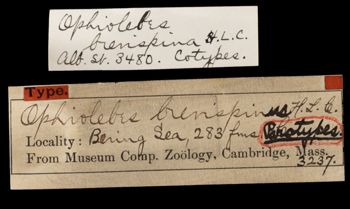 Ophiolebes
brevispina H.L.C.
Alb. St. 3480. Cotypes.
Type.
Ophiolebes brevispina H.L.C.
Locality: Bering Sea, 283 fms. Cotypes.
From Museum Comp. Zoölogy, Cambridge, Mass.
3237.